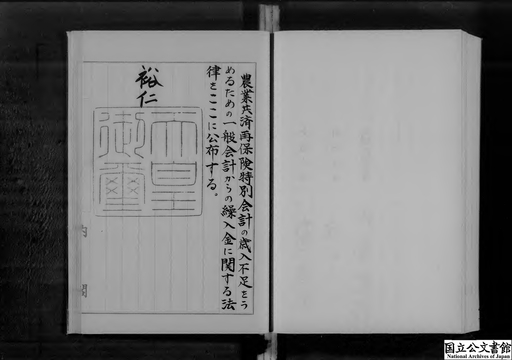 農業共済再保険特別会計の歳入不足をう
めるための一般会計からの繰入金に関する法
律をここに公布する。
裕仁
天皇
御璽
国立公文書館
National Archives of Japan